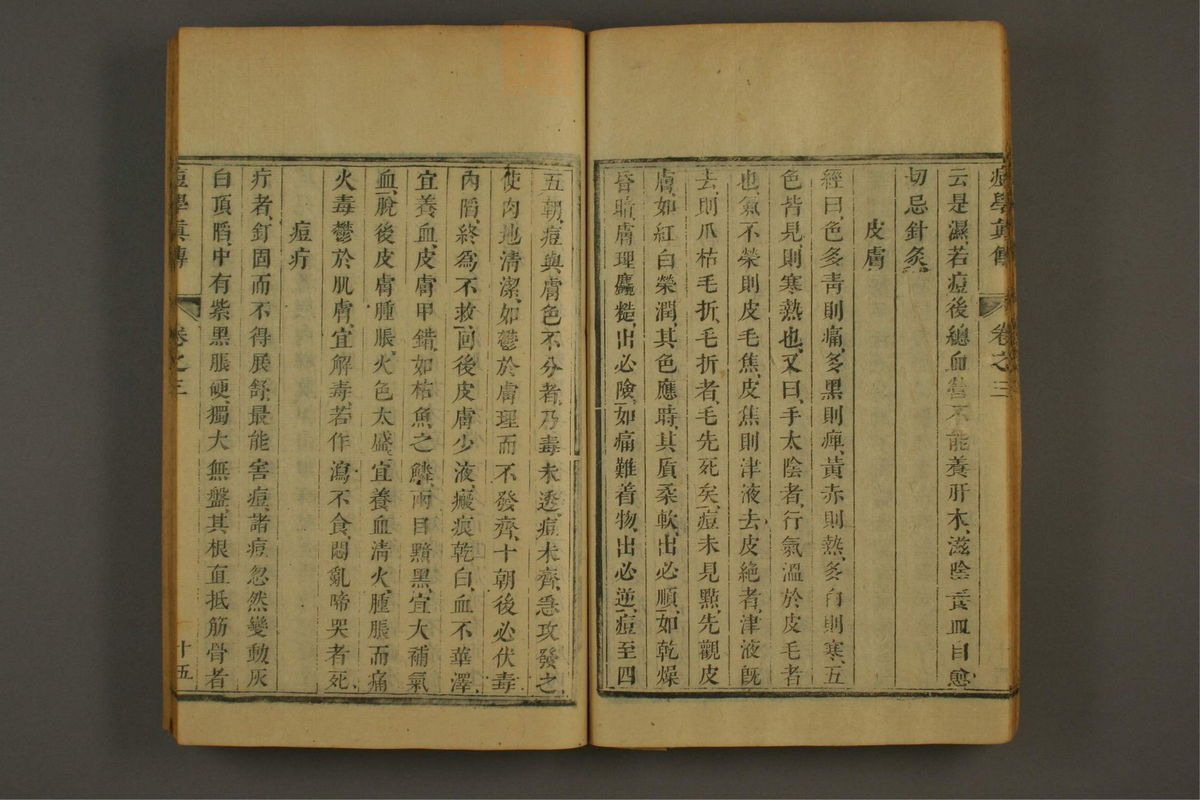 痘學眞傳 卷之三
云是濕若痘後總血營不能養肝木、滋陰養血目愈、
切忌針灸
皮膚
經曰、色多靑則痛、多黑則痺、黃赤則熱、多白則寒、五
色皆見、則寒熱也、又曰、手太陰者、行氣溫於皮毛者
也、氣不榮則皮毛焦、皮焦則津液去、皮絶者、津液旣
去、則爪枯毛折、毛折者、毛先死矣、痘未見點、先觀皮
膚、如紅白榮潤、其色應時、其質柔軟、出必順、如乾燥
昏暗、膚理麤糙、出必險、如痛難着物、出必逆、痘至四
五朝、痘與膚色不分者、乃毒未透、痘未齊、急攻發之、
使肉地清潔、如鬱於膚理而不發齊、十朝後必伏毒
內䧟、終爲不救、回後皮膚少液、瘢痕乾白、血不華澤、
宜養血、皮膚甲錯、如枯魚之鱗、兩目黯黑、宜大補氣
血、脫後皮膚腫脹、火色太盛、宜養血清火、腫脹而痛
火毒鬱於肌膚、宜解毒、若作瀉不食、悶亂啼哭者死、
痘疔
疔者、釘固而不得展舒、最能害痘、諸痘忽然變動、灰
白頂䧟、中有紫黑脹硬、獨大無盤、其根直抵筋骨者
痘學眞傳 卷之三 十五